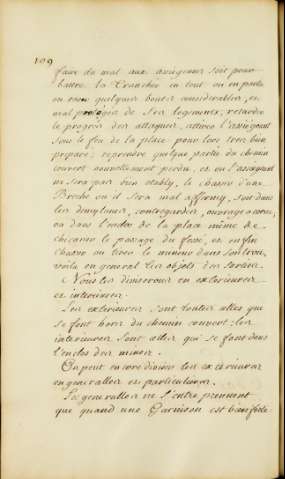 109
faire du mal aux assiégeans soit pour
battre la Tranchée en tout ou en partie
ou raser quelques bouts considerables, et
mal protégés de Ses logements, retarder
le progrès des attaques, attirer l'assiégeant
sous le feu de la place pour lors tres bien
préparé, reprendre quelque partie du chemin
couvert nouvellement perdu, et ou l'assiegeant
ne sera pas bien etably, le chasser d'une
Breche ou il sera mal affermy, soit dans
les demylunes, contregardes, ouvrage a corne,
ou dans l'enclos de la place même &c
chicaner le passage du fossé, et enfin
chasser ou tuer le mineur dans son trou,
voila en general les objets des sorties.
Nous les diviserons en extérieures
et interieures.
Les exterieures sont toutes celles qui
se font hors du chemin couvert les
interieures sont celles qui se font dans
l'enclos des mines.
On peut encore diviser les exterieures
en generalles et particulieres.
Les generalles ne s'entreprennent
que quand une Garnison est bien forte